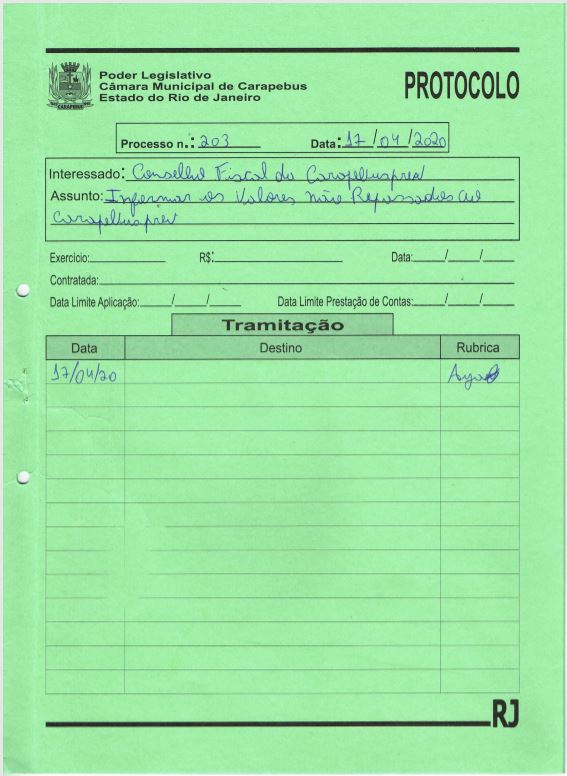 Poder Legislativo
Câmara Municipal de Carapebus
Estado do Rio de Janeiro
PROTOCOLO
CARAPEBUS
Processo n.: 203 Data: 17/04/2020
Interessado: Conselho Fiscal do Carapebusprev
Assunto: Informar os Valores não Repassados ao
Carapebusprev
Exercício: R$: Data: / /
Contratada:
Data Limite Aplicação: / / Data Limite Prestação de Contas: / /
Tramitação
Data Destino Rubrica
17/04/20
RJ